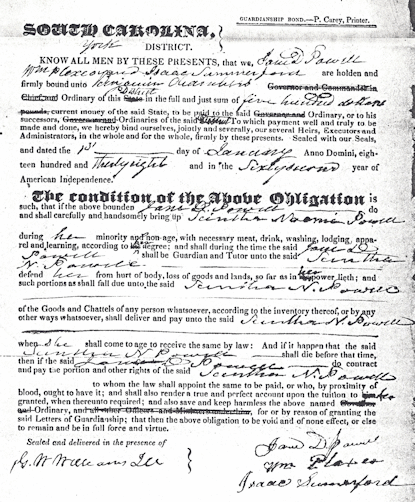 GUARDIANSHIP BOND.—P. Carey, Printer.
SOUTH CAROLINA,
York DISTRICT.
KNOW ALL MEN BY THESE PRESENTS, that we, Jane D Powell
Wm and Isaac Sumerford are holden and
firmly bound unto Benjamin Chambers Governor and Commander in
Chief and Ordinary of the State District in the full and just sum of five hundred dollars
pounds, current money of the said State, to be paid to the said Governor and Ordinary, or to his
successors, Governors or Ordinaries of the said District To which payment well and truly to be
made and done, we hereby bind ourselves, jointly and severally, our several Heirs, Executors and
Administrators, in the whole and for the whole, firmly by these presents. Sealed with our Seals,
and dated the 1st day of January Anno Domini, eigh-
teen hundred and thirty eight and in the Sixty second year of
American Independence.
The condition of the Above Obligation is
such, that if the above bounden Jane D. Powell do
and shall carefully and handsomely bring up Scintha Naomi Powell
during her minority and non-age, with necessary meat, drink, washing, lodging, appa-
rel and learning, according to her degree; and shall during the time the said Jane D
Powell shall be Guardian and Tutor unto the said Scintha
N. Powell
defend her from hurt of body, loss of goods and lands, so far as in her power lieth; and
such portions as shall fall due unto the said Scintha N. Powell
of the Goods and Chattels of any person whatsoever, according to the inventory thereof, or by any
other ways whatsoever, shall deliver and pay unto the said Scintha N. Powell
when she shall come to age to receive the same by law: And if it happen that the said
Scintha N. Powell shall die before that time,
then if the said Jane D Powell do contract
and pay the portion and other rights of the said Scintha N. Powell
to whom the law shall appoint the same to be paid, or who, by proximity of
blood, ought to have it; and shall also render a true and perfect account upon the tuition to him her
granted, when thereunto required; and also save and keep harmless the above named
and Ordinary, and all other Officers and for or by reason of granting the
said Letters of Guardianship; that then the above obligation to be void and of none effect, or else
to remain and be in full force and virtue.
Sealed and delivered in the presence of
G. W. Williams
Jane D Powell
Wm
Isaac Sumerford